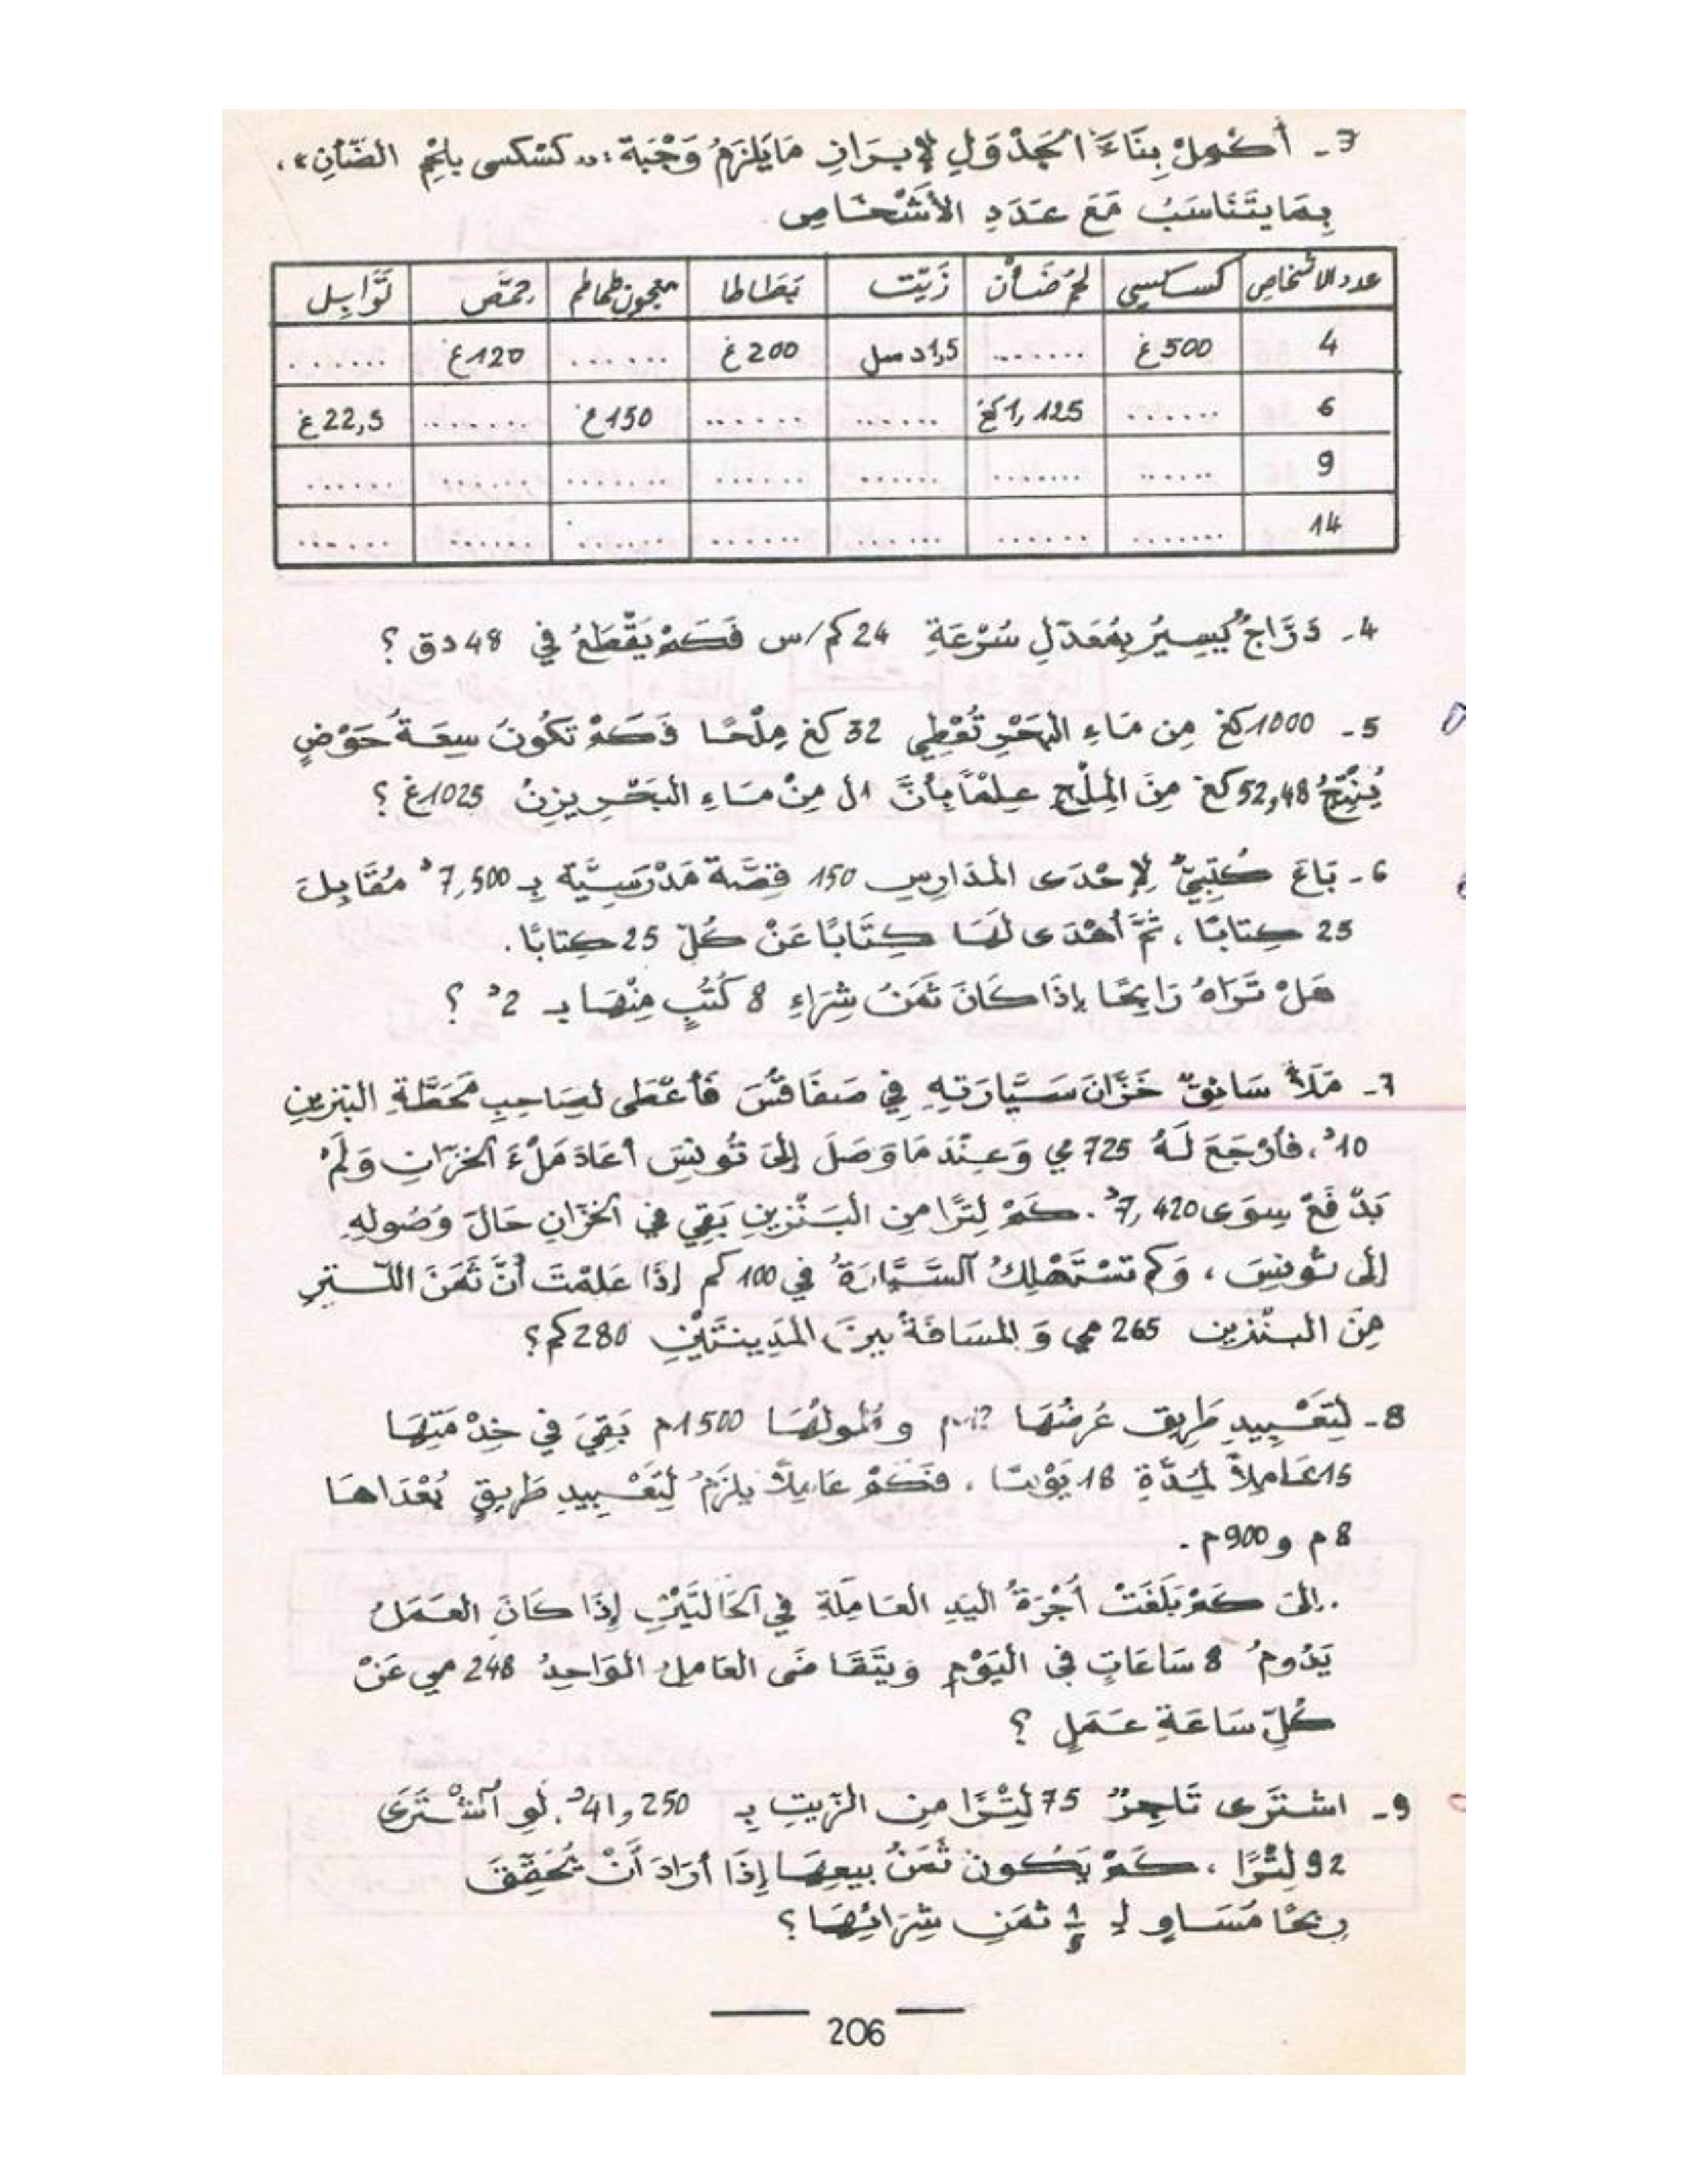 3 - أَكْمِلْ بِنَاءَ الْجَدْوَلِ لِإِبْرَازِ مَا يَلْزَمُ وَجْبَة : « كسْكسى بلحْمِ الضَّأنِ » ،
بِمَا يَتَنَاسَبُ مَعَ عَدَدِ الأَشْخَاصِ
عدد الاشخاص كسكسي لحم ضَأْن زَيْت بَطَاطا معجون طماطم حمَّص تَوَابِل
4 500 غ ....... 1,5 دسل 200 غ ...... 120 غ ......
6 ....... 1,125 كغ ...... ...... 150 غ ....... 22,5 غ
9 ...... ....... ...... ...... ....... ...... ......
14 ....... ...... ...... ....... ....... ...... ......
4 - دَرَّاجٌ يَسِيرُ بِمُعَدَّلِ سُرْعَةِ 24 كم/س فَكَمْ يَقْطَعُ فِي 48 دق ؟
5 - 1000 كغ مِن مَاءِ الْبَحْرِ تُعْطِي 32 كغ مِلْحًا فَكَمْ تَكُونُ سِعَةُ حَوْضٍ
يُنْتِجُ 52,48 كغ مِنَ الْمِلْحِ عِلْمًا بِأَنَّ 1 ل مِنْ مَاءِ الْبَحْرِ يَزِنُ 1025 غ ؟
6 - بَاعَ كُتُبِيٌّ لِإِحْدَى الْمَدَارِسِ 150 قِصَّة مَدْرَسِيَّة بِـ 7,500 د مُقَابِلَ
25 كِتابًا ، ثُمَّ أَهْدَى لَهَا كِتَابًا عَنْ كُلِّ 25 كِتابًا .
هَلْ تَرَاهُ رَابِحًا إِذَا كَانَ ثَمَنُ شِرَاءِ 8 كُتُبٍ مِنْهَا بـ 2 د ؟
7 - مَلَأَ سَائِقٌ خَزَّانَ سَيَّارَتِهِ فِي صَفَاقُسَ فَأَعْطَى لِصَاحِبِ مَحَطَّةِ الْبَنْزِينِ
10 د ، فَأَرْجَعَ لَهُ 725 مي وَعِنْدَمَا وَصَلَ إِلَى تُونِسَ أَعَادَ مَلْءَ الْخَزَّانِ وَلَمْ
يَدْفَعْ سِوَى 7,420 د . كَمْ لِتْرًا مِن الْبَنْزِينِ بَقِيَ فِي الْخَزَّانِ حَالَ وُصُولِهِ
إِلَى تُونِسَ ، وَكَمْ تَسْتَهْلِكُ السَّيَّارَةُ فِي 100 كم إِذَا عَلِمْتَ أَنَّ ثَمَنَ اللّتْرِ
مِنَ البنْزين 265 مي وَالْمَسَافَةُ بَيْنَ الْمَدِينَتَيْنِ 280 كم ؟
8 - لِتَعْبِيدِ طَرِيقٍ عَرْضُهَا م وَطُولُهَا 1500 م بَقِيَ فِي خِدْمَتِهَا
15 عَامِلاً لِمُدَّةِ 18 يَوْمًا ، فَكَمْ عَامِلاً يَلْزَمُ لِتَعْبِيدِ طَرِيقٍ بُعْدَاهَا
8 م و 900 م .
. إِلَى كَمْ بَلَغَتْ أُجْرَةُ الْيَدِ الْعَامِلَةِ فِي الْحَالَتَيْنِ إِذَا كَانَ الْعَمَلُ
يَدُومُ 8 سَاعَاتٍ فِي الْيَوْمِ وَيَتَقَاضَى الْعَامِلُ الْوَاحِدُ 248 مي عَنْ
كُلِّ سَاعَةِ عَمَلٍ ؟
9 - اشْتَرَى تَاجِرٌ 75 لِتْرًا مِن الزَّيتِ بِـ 41,250 د . لَوِ اشْتَرَى
92 لِتْرًا ، كَمْ يَكُونُ ثَمَنُ بَيْعِهَا إِذَا أَرَادَ أَنْ يُحَقِّقَ
رِبْحًا مُسَاوٍ لِـ 1/5 ثَمَنِ شِرَائِهَا ؟
206